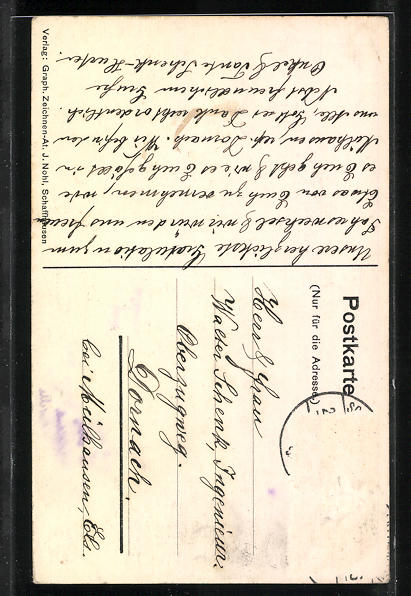 Postkarte
(Nur für die Adresse)
Herr & Frau
Walter Schenk, Ingenieur
Oberzugweg.
Dornach.
bei Mülhausen, Els.
Unsere herzlichste Gratulation zum
Jahreswechsel & wir würden uns freuen
Etwas von Euch zu vernehmen, wie
es Euch geht & wie es Euch gefällt in
Mülhausen resp. Dornach. Wir befinden
uns Alle, Gott sei Dank recht ordentlich.
Nebst freundlichem Gruße
Onkel & Tante Schenk-Huster.
Verlag: Graph. Zeichnen-At. J. Nohl, Schaffhausen